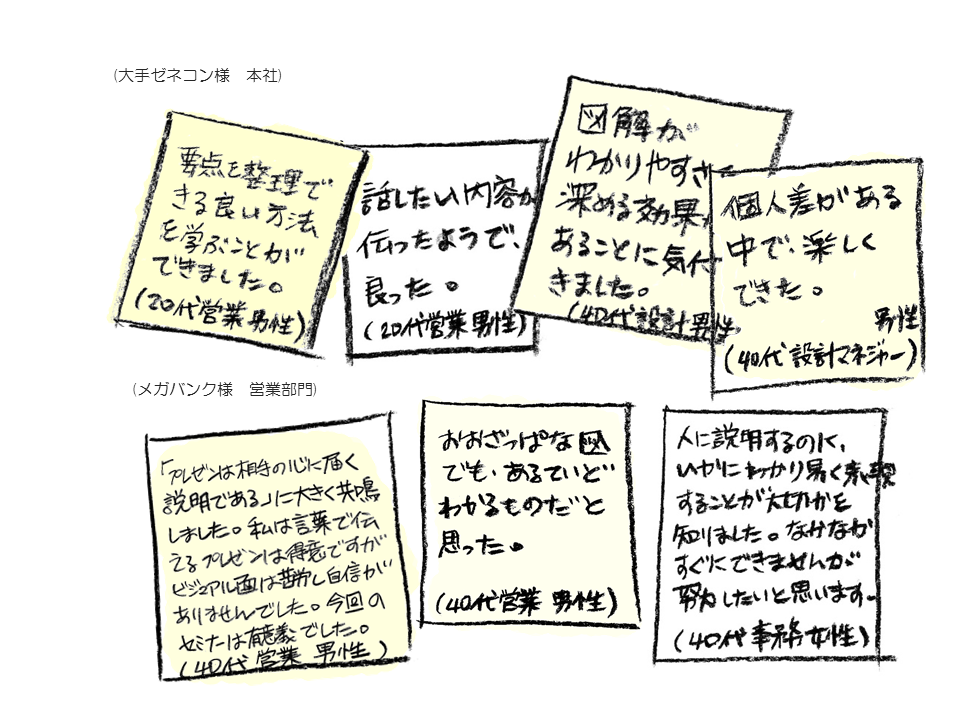 (大手ゼネコン様　本社)
要点を整理で
きる良い方法
を学ぶことが
できました。
(20代営業男性)
話したい内容が
伝ったようで、
良った。
(20代営業男性)
図解が
わかりやすさ
深める効果
あることに気付
きました。
(40代設計男性
個人差がある
中で、楽しく
できた。
男性
(40代設計マネジャー)
(メガバンク様　営業部門)
「プレゼンは相手の心に届く
説明である」に大きく共鳴
しました。私は言葉で伝
えるプレゼンは得意ですが
ビジュアル面は苦労し自信が
ありませんでした。今回の
セミナーは有意義でした。
(40代営業男性)
おおざっぱな図
でも、あるていど
わかるものだと
思った。
(40代営業男性)
人に説明するのに、
いかにわかり易く表現
することが大切かを
知りました。なかなか
すぐにできませんが
努力したいと思います。
(40代事務女性)